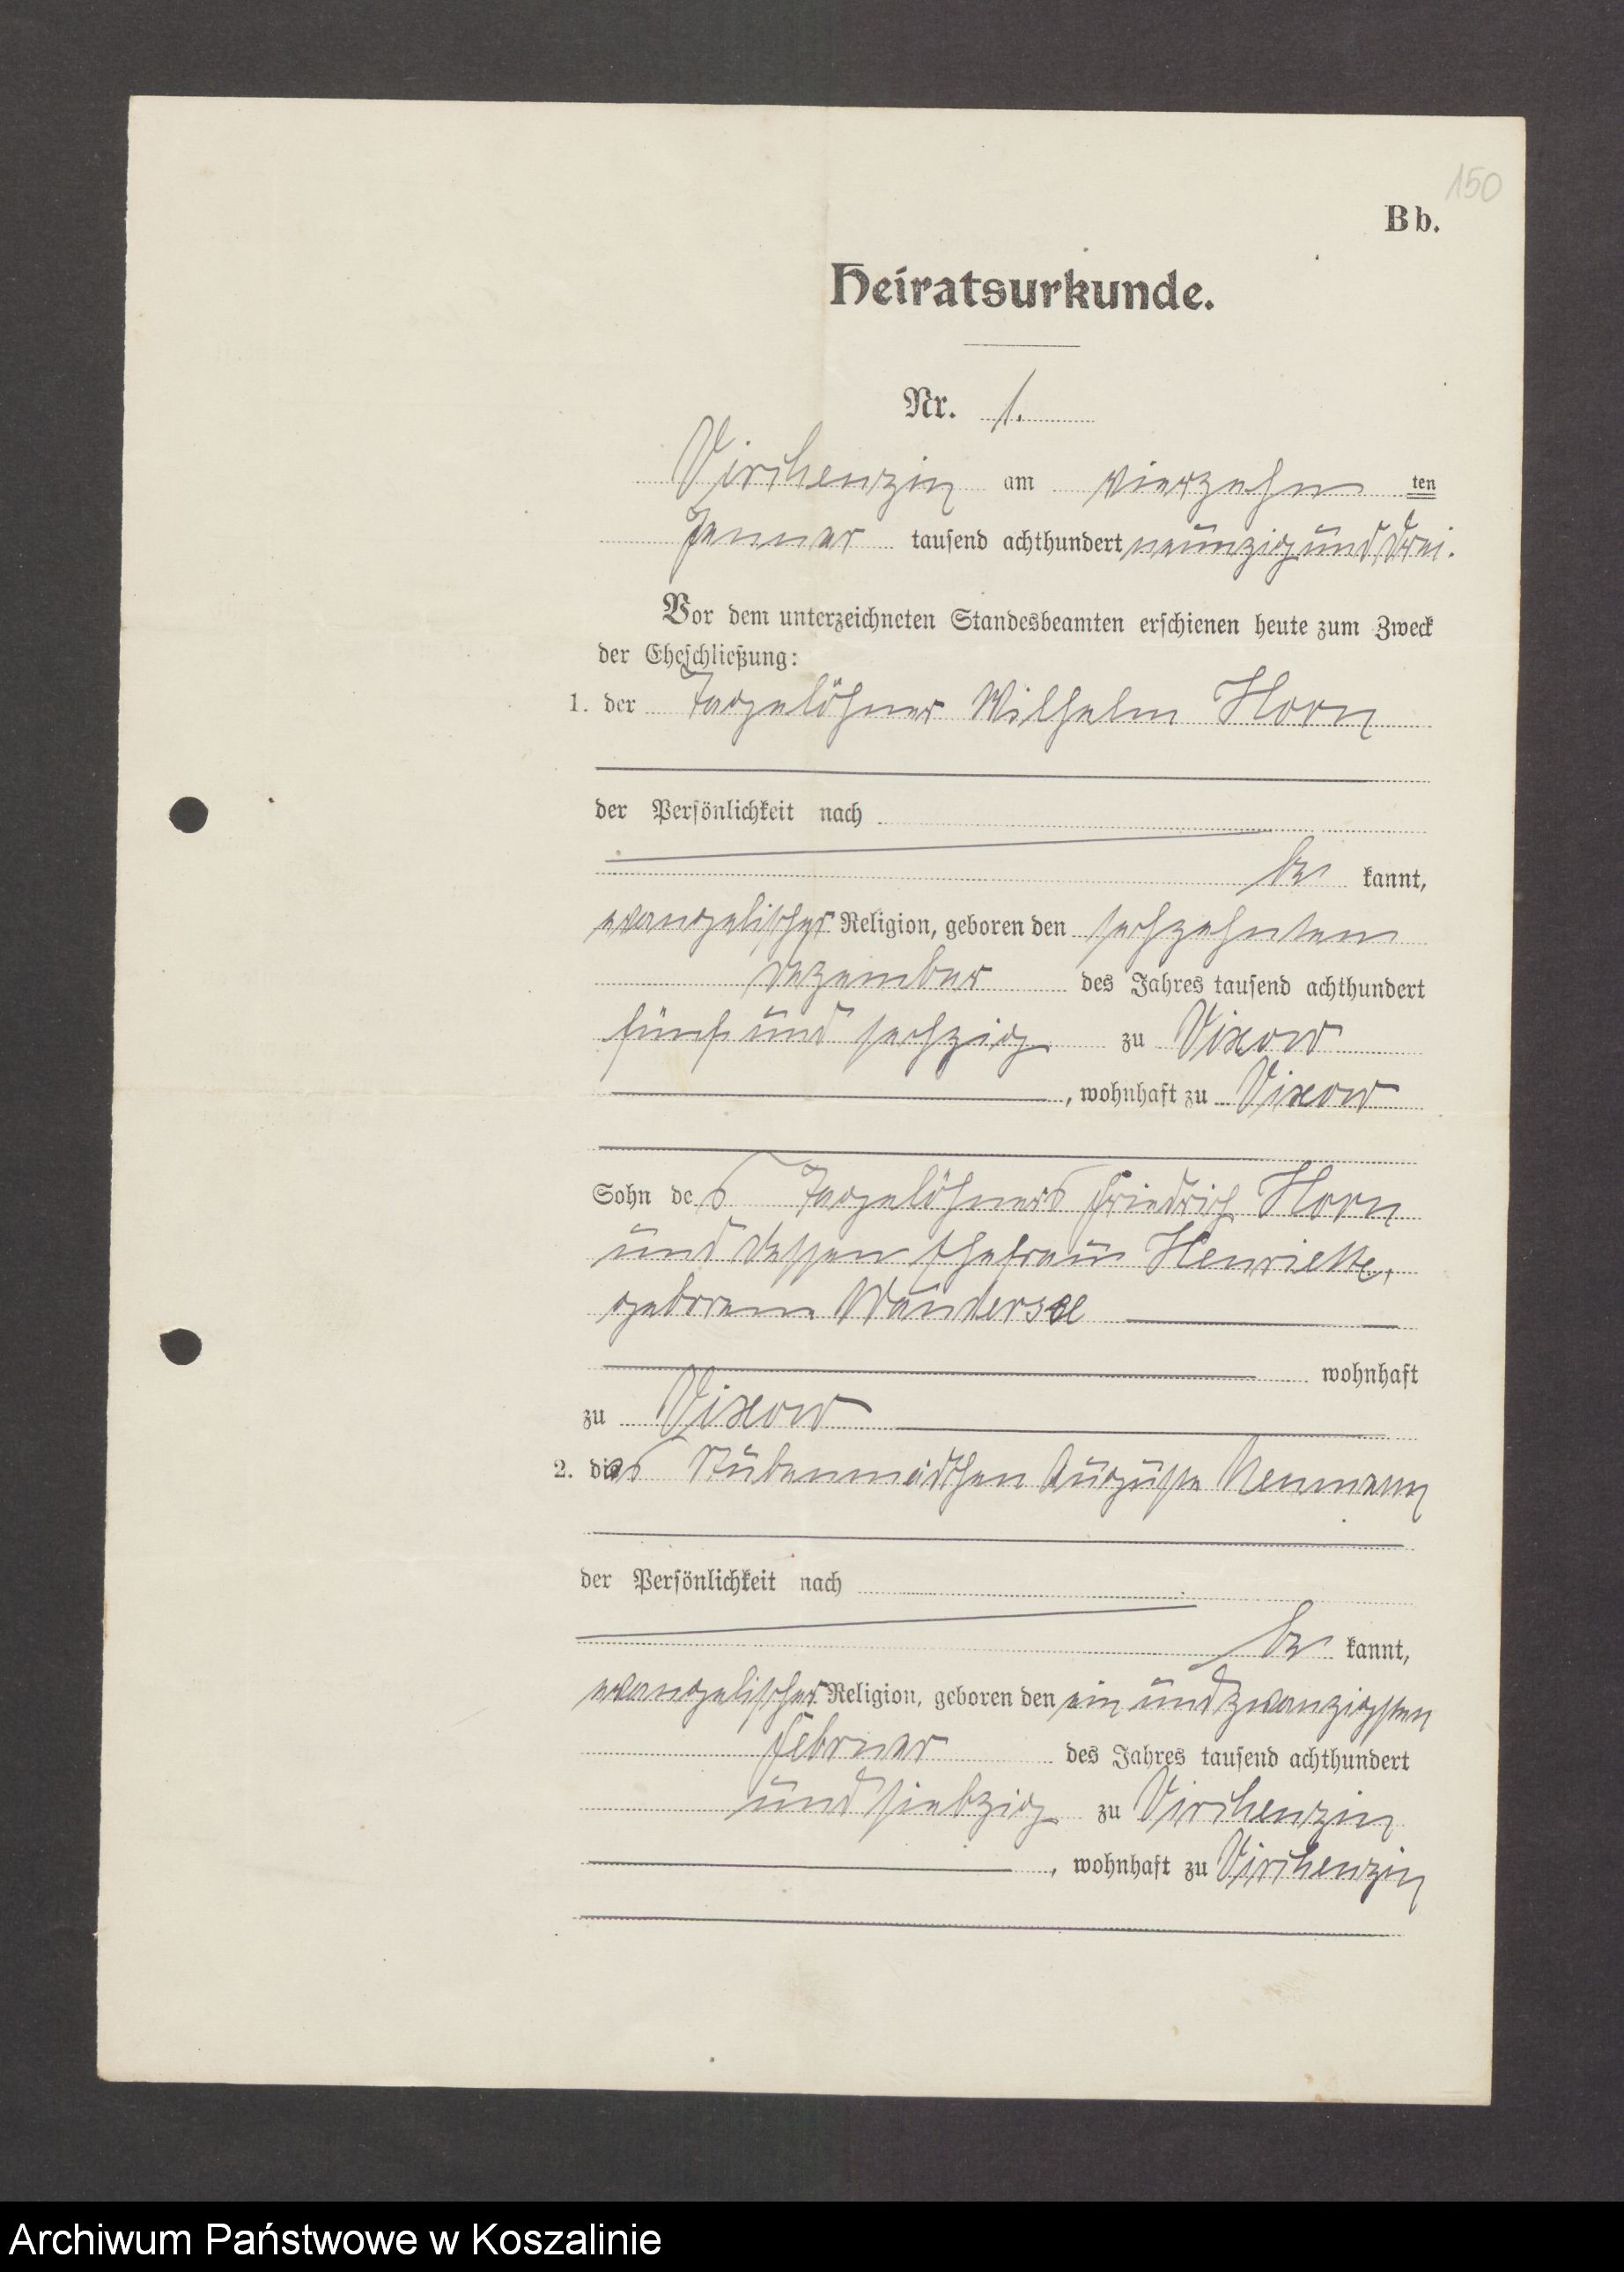 150
Bb.
Heiratsurkunde.
Nr. 1.
Virchenzin am vierzehn ten
Januar tausend achthundert neunzig und drei.
Vor dem unterzeichneten Standesbeamten erschienen heute zum Zweck
der Eheschließung:
1. der Tagelöhner Wilhelm Horn
der Persönlichkeit nach
be kannt,
evangelischer Religion, geboren den sechzehnten
Dezember des Jahres tausend achthundert
fünf und sechzig zu Vixow
, wohnhaft zu Vixow
Sohn des Tagelöhners Friedrich Horn
und dessen Ehefrau Henriette,
geborene
wohnhaft
zu Vixow
2. das Stubenmädchen Auguste Neumann
der Persönlichkeit nach
be kannt,
evangelischer Religion, geboren den ein und zwanzigsten
Februar des Jahres tausend achthundert
und siebzig zu Virchenzin
, wohnhaft zu Virchenzin
Archiwum Państwowe w Koszalinie